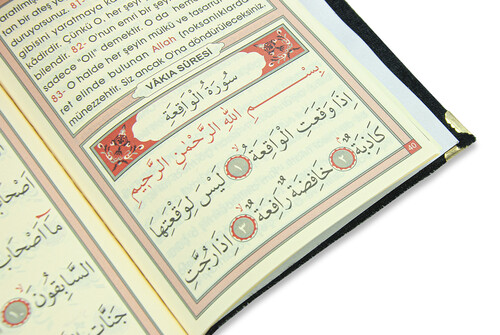 tan bir ateş
duruyorsunuz. 81-
gibisini yaratmaya k
kâdirdir. Çünkü O, her şey
bilendir. 82- O'nun emri bir şey
sadece "Ol!" demektir. O da hemen
83- O halde her şeyin mülkü ve tasarruf
ret elinde bulunan Allah (noksanlıklardan
münezzehtir. Siz ancak O'na döndürüleceksiniz.
VÂKIA SÛRESİ
سُورَةُ الْوَاقِعَةِ
بِسْمِ اللّٰهِ الرَّحْمٰنِ الرَّحِيمِ
اِذَا وَقَعَتِ الْوَاقِعَةُ ١ لَيْسَ لِوَقْعَتِهَا
كَاذِبَةٌ ٢ خَافِضَةٌ رَافِعَةٌ ٣ اِذَا رُجَّتِ
40
اَصْحَابُ
مَٓا اَصْحَابُ
السَّابِقُونَ ١٠
جَنَّاتِ